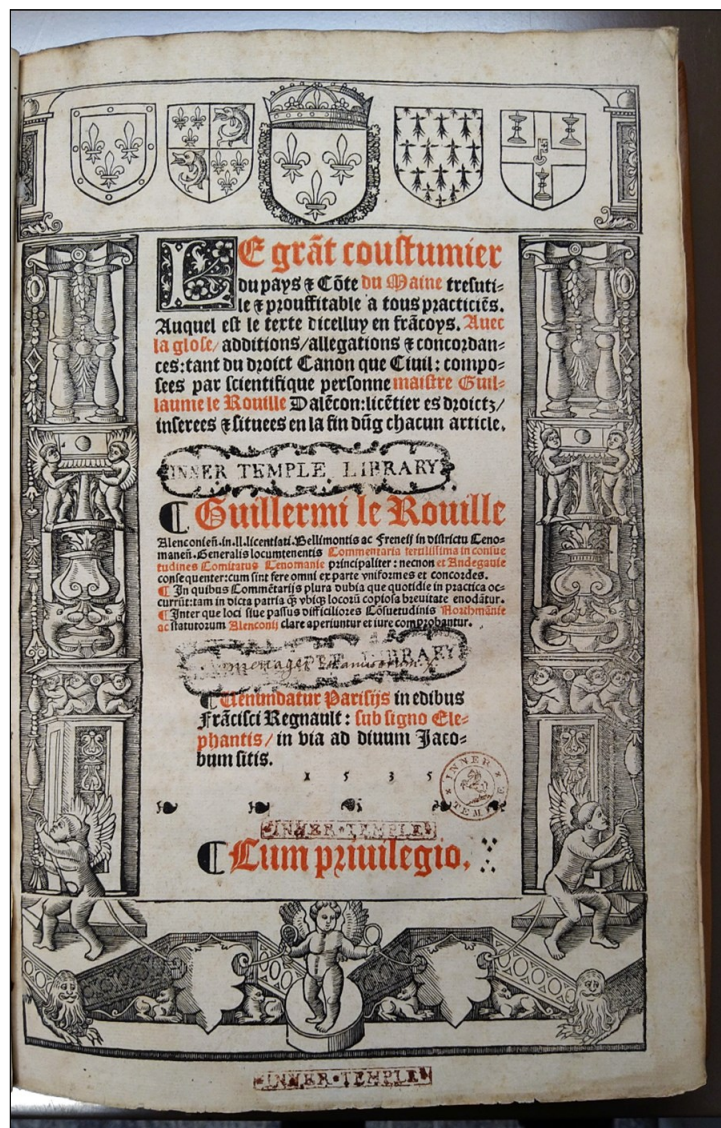 LE grãt coustumier
du pays ⁊ Cõte du Maine tresuti-
le ⁊ prouffitable a tous practiciẽs.
Auquel est le texte dicelluy en frãcoys. Auec
la glose/ additions/allegations ⁊ concordan-
ces: tant du droict Canon que Ciuil: compo-
sees par scientifique personne maistre Guil-
laume le Rouille Dalẽcon: licẽtier es droictz/
inserees ⁊ situees en la fin dũg chacun article.
INNER TEMPLE LIBRARY
¶ Guillermi le Rouille
Alenconieñ. in. ll. licentiati. Bellimontis ac Freneij in districtu Ceno-
maneñ. Generalis locumtenentis Commentaria fertilissima in consue
tudines Comitatus Cenomanie principaliter: necnon et Andegauie
consequenter: cum sint fere omni ex parte vniformes et concordes.
¶ In quibus Commẽtarijs plura dubia que quotidie in practica oc-
currũt: tam in dicta patria q̃ʒ vbiqʒ locorũ copiosa breuitate enodãtur.
¶ Inter que loci siue passus difficiliores Cõsuetudinis Northmãnie
ac statutorum Alenconij clare aperiuntur et iure comprobantur.
LIBRARY
¶ Uenundatur Parisijs in edibus
Frãcisci Regnault: sub signo Ele-
phantis/ in via ad diuum Jaco-
bum sitis.
1535
INNER TEMPLE
INNER·TEMPLE
¶ Cum priuilegio.
INNER·TEMPLE